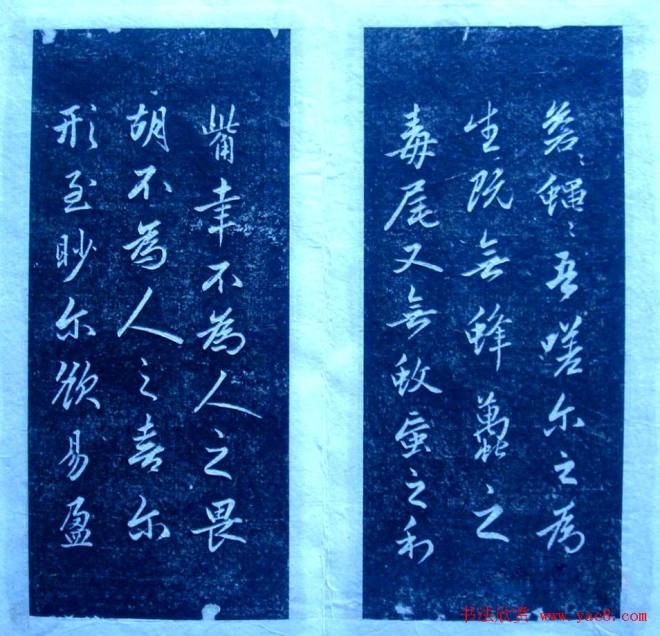 蒼〻蠅〻吾嗟尔之為
生既無蜂蠆之
毒尾又無蚊虻之利
觜幸不為人之畏
胡不為人之喜尔
形至眇尔欲易盈
书法欣赏 www.yac8.com